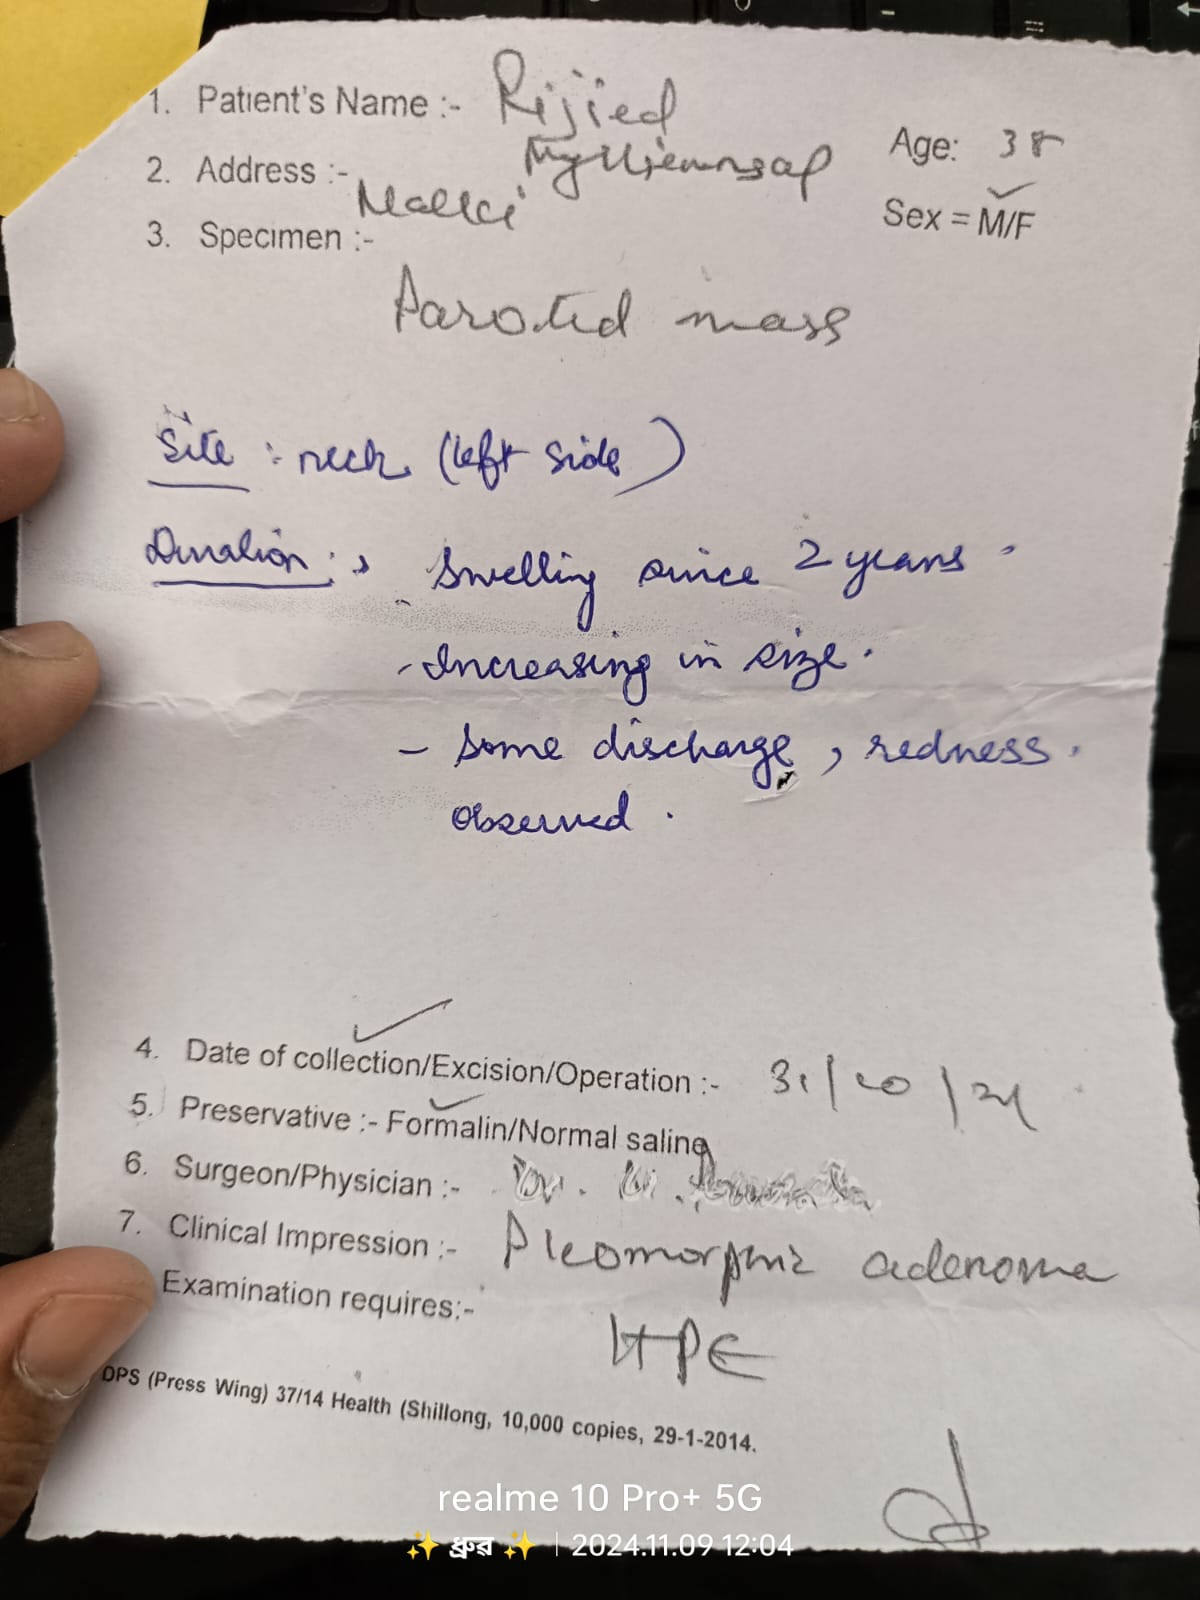 1. Patient's Name :- Rijied
Age: 38
2. Address :- Mylliemngap
Malki
Sex = M/F
3. Specimen :-
Parotid mass
Site : neck (left side)
Duration : Swelling since 2 years.
- Increasing in size.
- Some discharge, redness.
observed.
4. Date of collection/Excision/Operation :- 31/10/24
5. Preservative :- Formalin/Normal saline
6. Surgeon/Physician :- Dr.
7. Clinical Impression :- Pleomorphic adenoma
Examination requires:-
HPE
DPS (Press Wing) 37/14 Health (Shillong, 10,000 copies, 29-1-2014.
realme 10 Pro+ 5G
✨ ধ্রুৱ ✨ | 2024.11.09 12:04